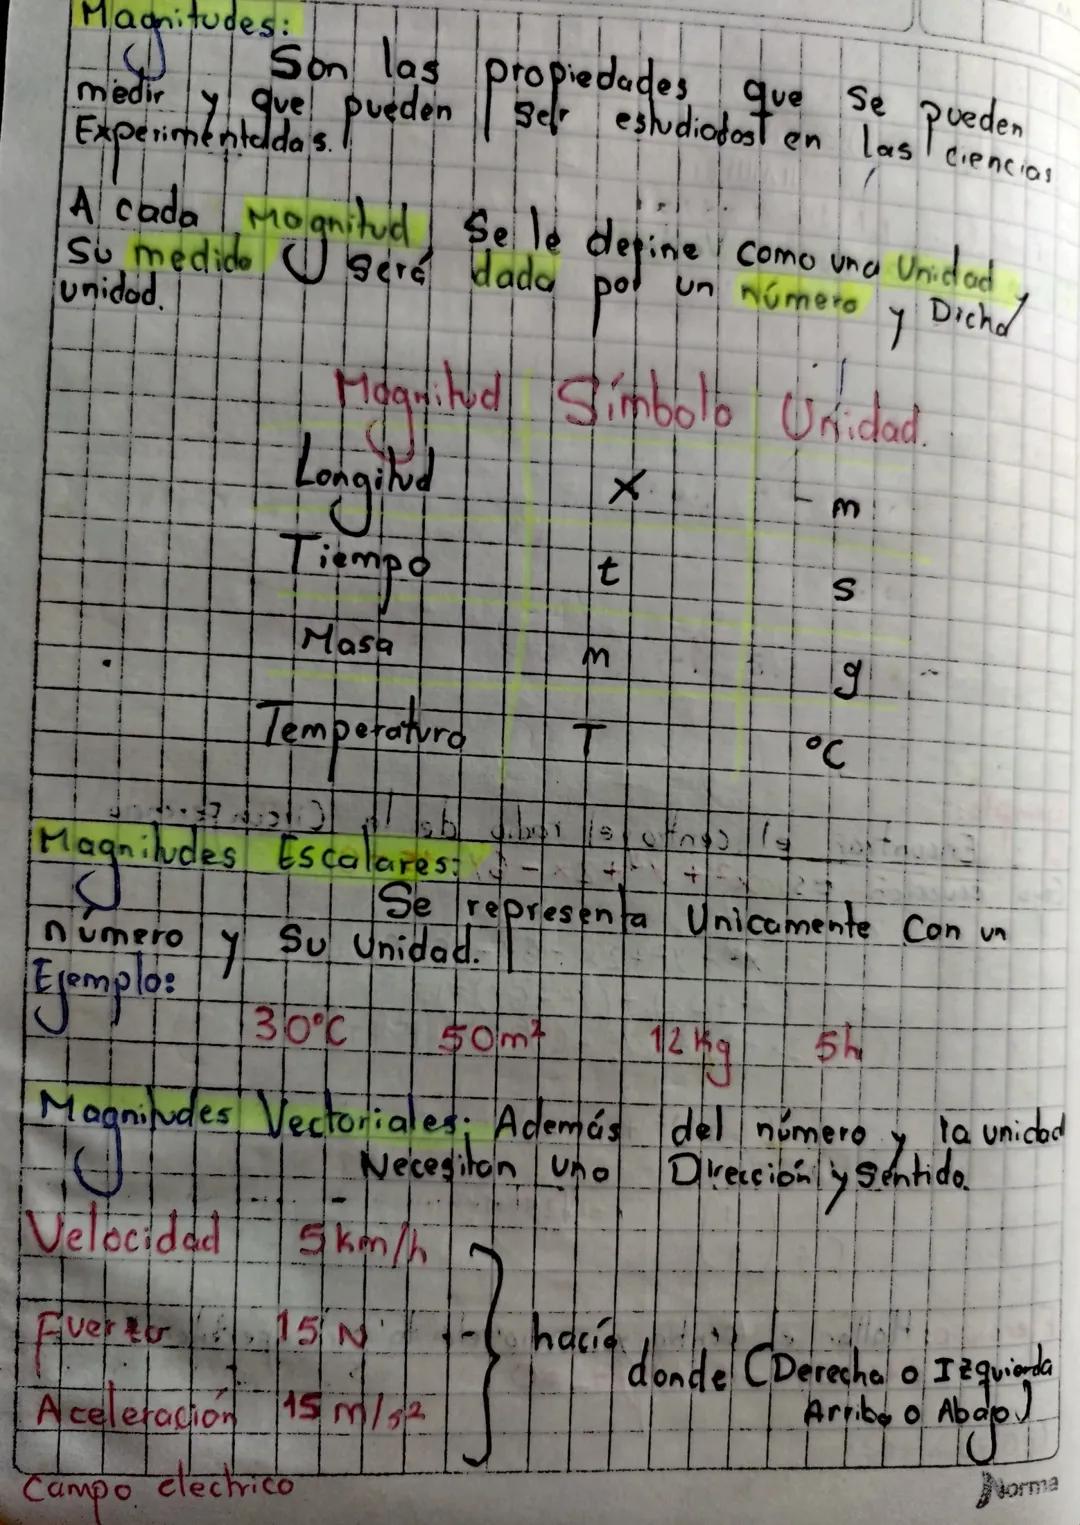 Magnitudes:
Son las propiedades que se pueden
medir y que pueden ser estudiadas en las ciencias
Experimentadas.
A cada Magnitud Se le define como una Unidad y
Su medida será dada por un número y Dicha
unidad.
Magnitud Símbolo Unidad.
Longitud x m
Tiempo t s
Masa m g
Temperatura T °C
Magnitudes Escalares:
Se representa Unicamente Con un
número y Su Unidad.
Ejemplo:
30°C 50m² 12 Kg 5h
Magnitudes Vectoriales: Además del número y la unidad
Necesitan una Dirección y Sentido.
Velocidad 5 km/h
Fuerza 15 N hacía
donde (Derecha o Izquierda
Aceleración 15 m/s² Arriba o Abajo)
Campo electrico
Norma